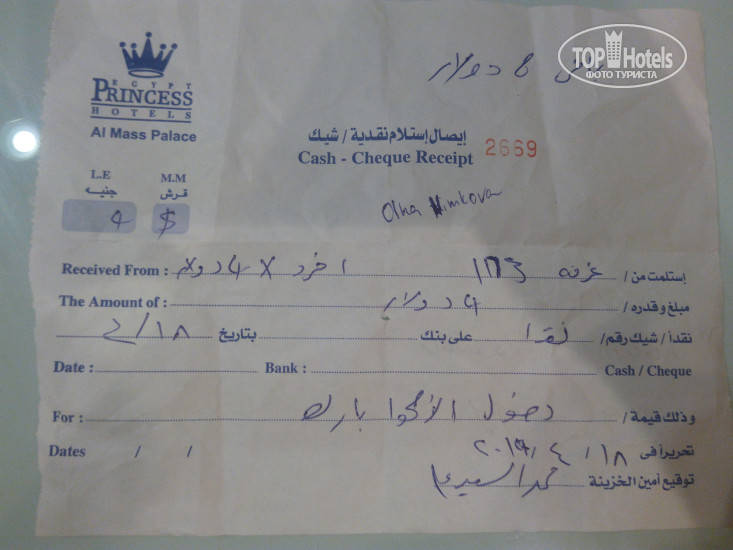 TOP Hotels
ФОТО ТУРИСТА
دولار
EGYPT
PRINCESS
HOTELS
Al Mass Palace
إيصال إستلام نقدية / شيك
Cash - Cheque Receipt 2669
L.E M.M
جنيه قرش
4 $
Olha
Received From : غرفه 1173 ١ فرد X 4 دولار إستلمت من /
The Amount of : 4 دولار مبلغ وقدره /
نقداً / شيك رقم / نقدا على بنك بتاريخ
Date : Bank : Cash / Cheque
For : دخول الأكوا بارك وذلك قيمة /
Dates / / تحريراً فى ١٨ / ٤ / ٢٠١٩
توقيع أمين الخزينة محمد